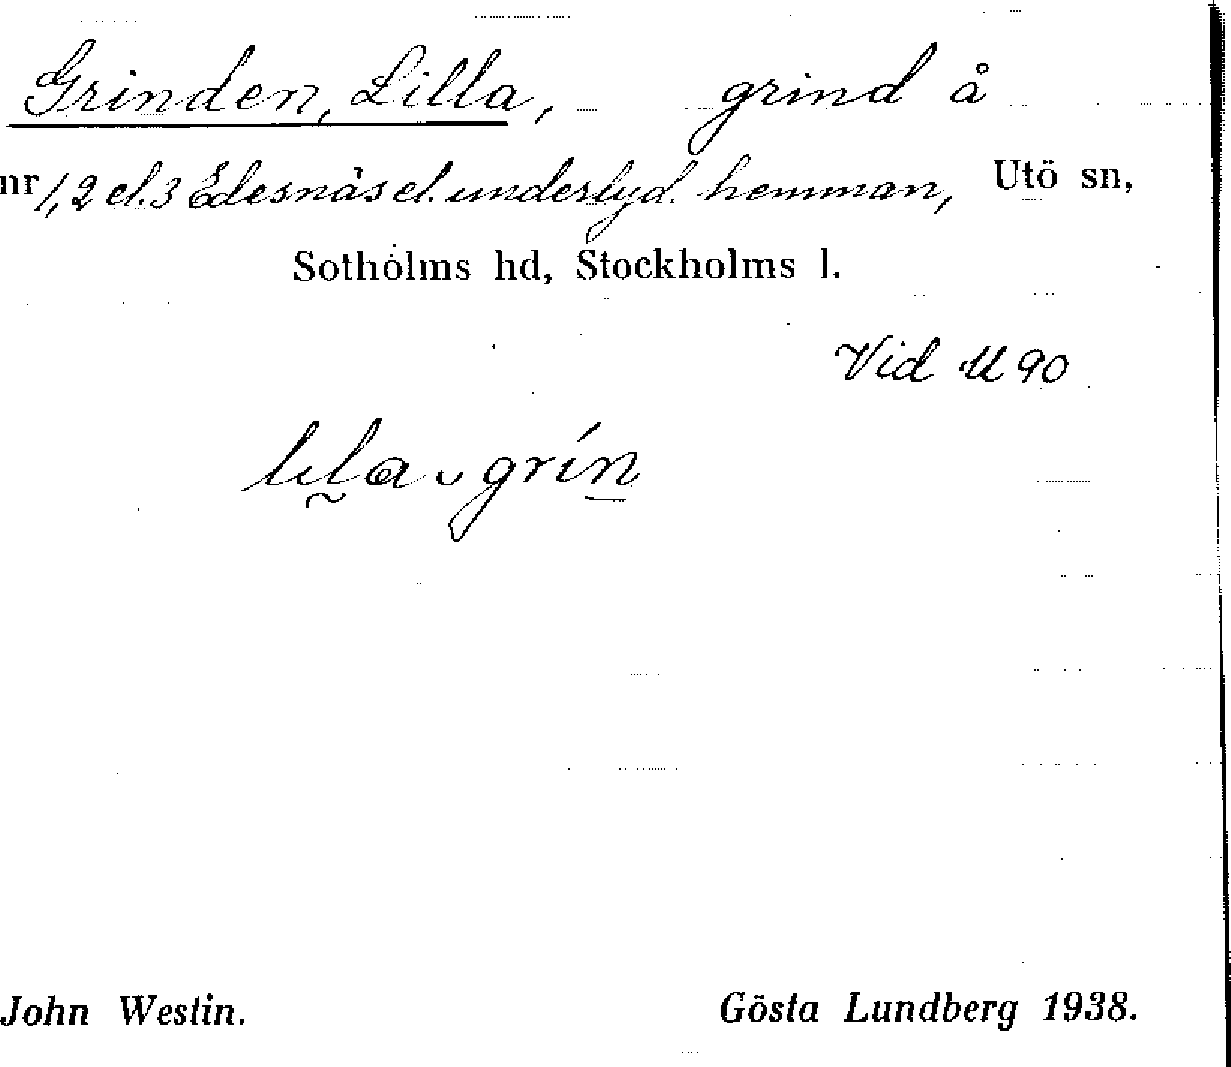 Grinden, Lilla, grind å
nr 1, 2 el. 3 Edesnäs el. underlyd. hemman, Utö sn,
Sotholms hd, Stockholms l.
Vid U 90
John Westin. Gösta Lundberg 1938.